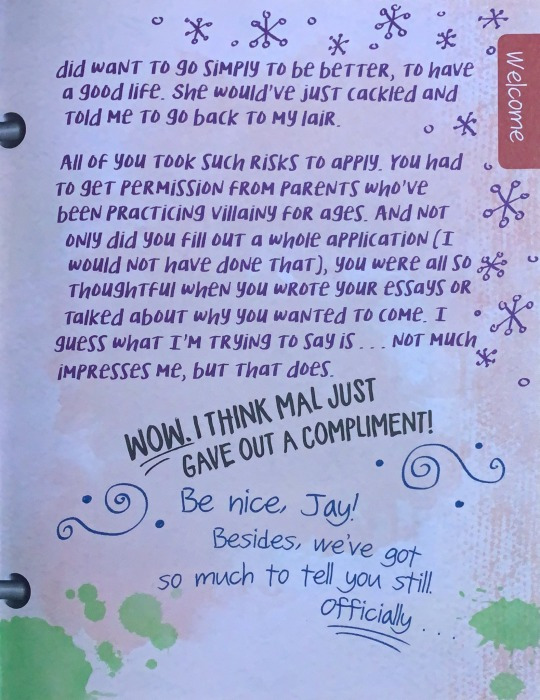 Welcome
did WANT TO gO SiMPLY TO bE bETTER, TO hAVE
A gOOd LiFE. ShE WOULd'VE JUST CACKLEd ANd
TOLd ME TO gO bACK TO MY LAiR.
ALL OF yOU TOOK SUCh RiSKS TO APPLY. YOU hAd
TO gET PERMiSSiON FROM PARENTS WhO'VE
bEEN PRACTiCiNg ViLLAiNY FOR AgES. ANd NOT
ONLY did yOU FiLL OUT A WhOLE APPLiCATiON (I
WOULd NOT hAVE dONE ThAT), yOU WERE ALL SO
ThOUghTFUL WhEN yOU WROTE yOUR ESSAYS OR
TALKEd AbOUT WhY yOU WANTEd TO COME. I
gUESS WhAT I'M TRYiNg TO SAY iS . . . NOT MUCh
iMPRESSES ME, bUT ThAT dOES.
WOW. I THINK MAL JUST
GAVE OUT A COMPLIMENT!
Be nice, Jay!
Besides, we've got
so much to tell you still.
Officially . . .